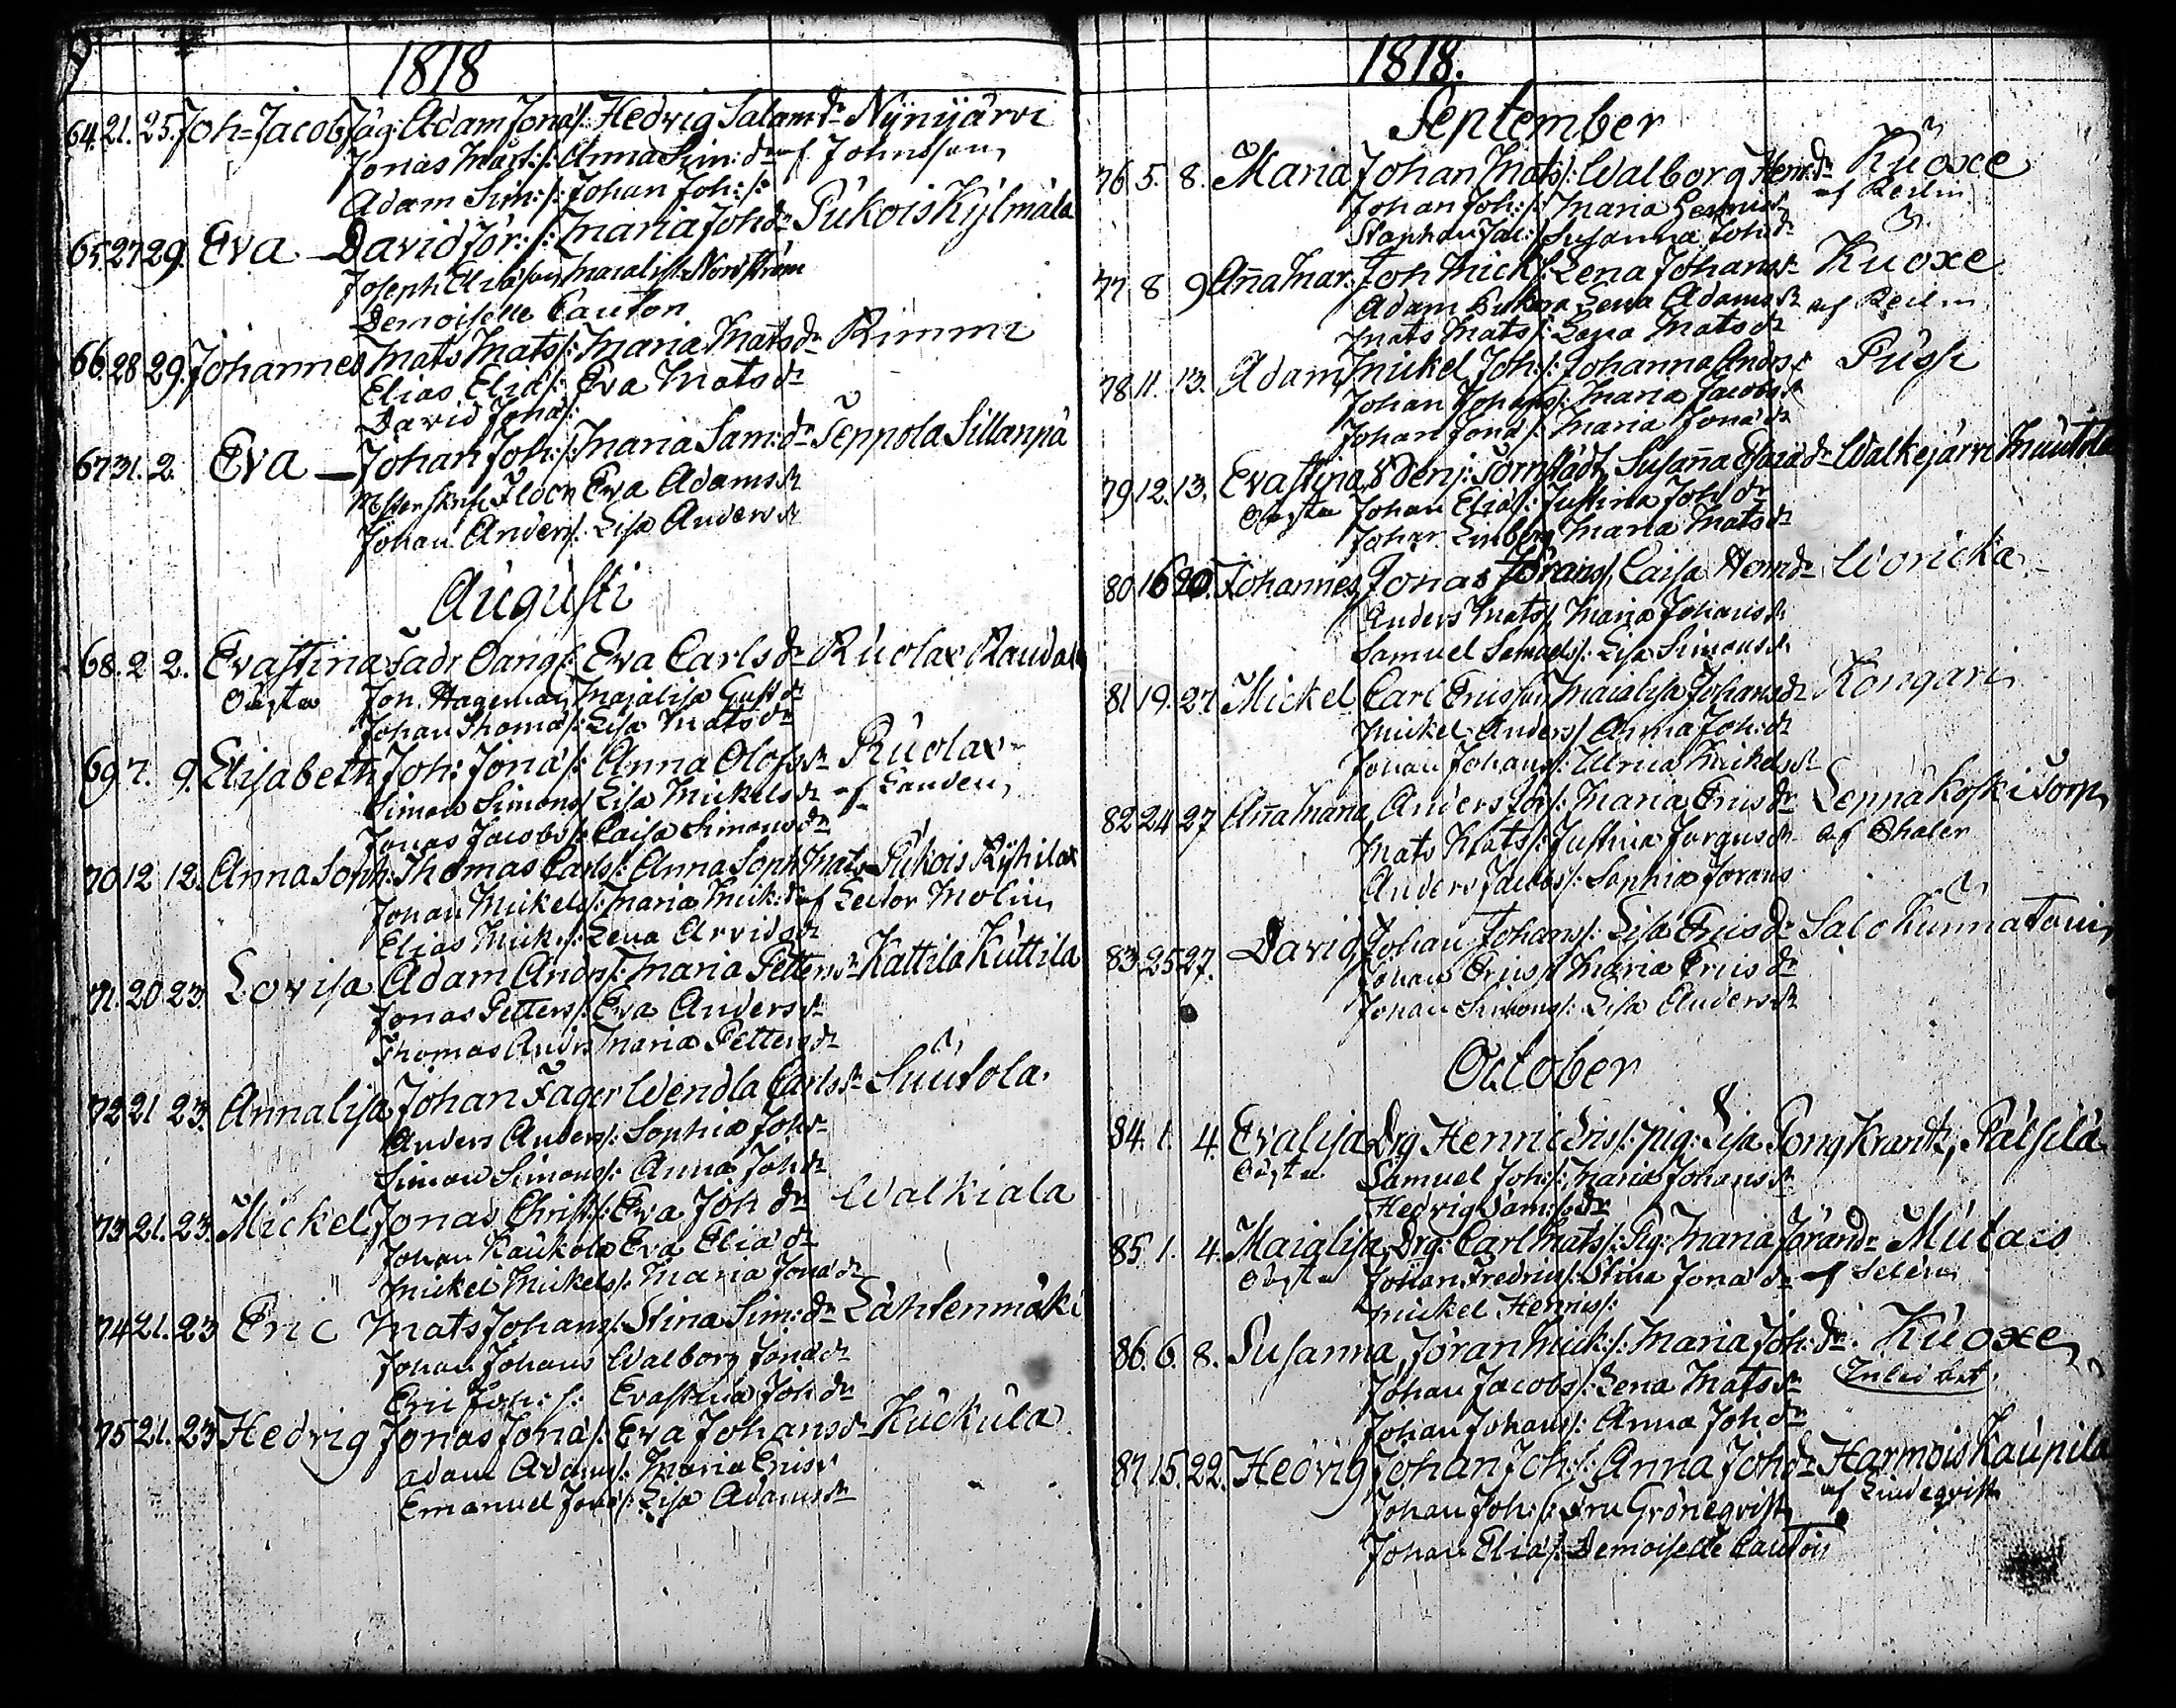 1818
64. 21. 25. Joh=Jacob Jäg: Adam Jona/: Hedvig Salam dr Nynijärvi
Jonas Mart:/: Anna Sim: dr af Johnsson
Adam Sim:/: Johan Joh:/:
65. 27 29. Eva — David Jör:/: Maria Joh dr Pukois Kylmälä
Joseph Eliasson Maialisa Nordström
Demoiselle Canton
66. 28 29. Johannes Mats Mats/: Maria Mats dr Rimmi
Elias Elia/: Eva Mats dr
David Jona/:
67 31. 2. Eva — Johan Joh:/: Maria Sam: dr Seppola Sillanpä
Flock Eva Adams dr
Johan Anders/: Lisa Anders dr
Augusti
68. 2 2. Evastina Eva Carls dr Ruolax
Oägta Joh. Hageman Majalisa Gust dr
Johan Thoma/: Lisa Mats dr
69 7. 9. Elisabeth Joh: Jona/: Anna Olofs dr Ruolax
Simon Simons/: Lisa Mickels dr af Landen
Jonas Jacobs/: Caisa Simons dr
70 12 12. Anna Soph: Thomas Carls/: Anna Soph Mats Pukois Ryhilax
Johan Mickels/: Maria Mick: dr af Lector Molin
Elias Mick:/: Lena Arvids dr
71. 20 23. Lovisa Adam Anders/: Maria Petters dr Kattila Kuttila
Jonas Petters/: Eva Anders dr
Thomas Anders Maria Petters dr
72 21 23. Annalisa Johan Fager Wendla Carls dr Suutola
Anders Anders/: Sophia Joh dr
Simon Simons/: Anna Joh dr
73 21. 23. Mickel Jonas Christ:/: Eva Joh dr Walkiala
Johan Kaukola Eva Elia dr
Mickel Mickels/: Maria Jona dr
74 21. 23 Eric Mats Johans/: Stina Sim: dr Lähtenmäki
Johan Johans Walborg Jona dr
Eric Joh:/: Evastina Joh dr
75 21. 23 Hedvig Jonas Jona/: Eva Johans dr Kuckula
Adam Adams/: Maria Erics dr
Emanuel Jona/: Lisa Adams dr
1818.
September
76 5. 8. Maria Johan Mats/: Walborg Henr: dr Kuoxe
Johan Joh:/: Maria Henrics dr af Reilin
Staphan Jac:/: Susanna Joh dr
77 8 9 Anna Mar: Joh Mick/: Lena Johans dr Kuoxe
Adam Lena Adams dr af Reilin
Mats Mats/: Lena Mats dr
78 11. 13. Adam Mickel Joh:/: Johanna Anders dr Pussi
Johan Johans/: Maria Jacobs dr
Johan Jona/: Maria Jona dr
79 12. 13. Evastina Susanna Esaia dr Walkejärvi Mautola
Oägta Johan Elia/: Justina Joh dr
Johan Linberg Maria Mats dr
80 16 20. Johannes Jonas Jörans/: Caisa Henr dr Woricka
Anders Mats/: Maria Johans dr
Samuel Samuels/: Lisa Simons dr
81 19. 27. Mickel Carl Ericsson Maialisa Johans dr Kongari
Mickel Anders/: Anna Joh: dr
Johan Johans/: Ulrica Mickels dr
82 24 27 Anna Maria Anders Jör/: Maria Erics dr Leppäkoski Torp
Mats Mats/: Justina Jörgens dr af Thalen
Anders Jacobs/: Sophia Jörans
83 25 27. David Johan Johans/: Lisa Erics dr Salo
Johan Erics/: Maria Erics dr
Johan Simons/: Lisa Anders dr
October
84. 1. 4. Evalisa Drg Henric Erics/: pig: Lisa Krantz, Pätsilä
Oägta Samuel Joh:/: Maria Johans dr
Hedvig Sam: dr
85. 1. 4. Maialisa Drg: Carl Mats/: Pig: Maria Jöran dr Mutais
Oägta Johan Fredrics/: Stina Jona dr af Selen
Mickel Henrics/:
86. 6. 8. Susanna Jöran Mick:/: Maria Joh: dr. Kuoxe
Johan Jacobs/: Lena Mats dr
Johan Johans/: Anna Joh dr
87. 15. 22. Hedvig Johan Joh:/: Anna Joh dr Harmois Kaupila
Johan Joh:/: Fru Gröneqvist af Lindeqvist
Johan Elia/: Demoiselle Canton